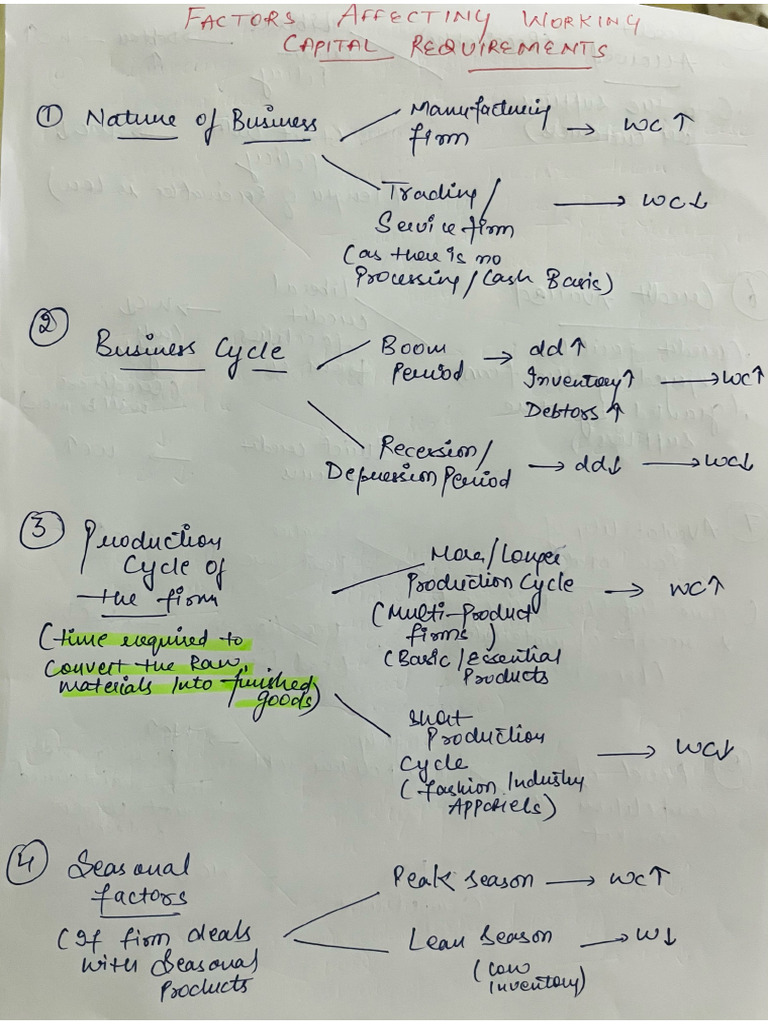 FACTORS AFFECTING WORKING
CAPITAL REQUIREMENTS
① Nature of Business
Manufacturing
firm → WC↑
Trading/
Service firm → WC↓
(as there is no
Processing/Cash Basis)
② Business Cycle
Boom
Period → dd↑
Inventory↑ → WC↑
Debtors↑
Recession/
Depression Period → dd↓ → WC↓
③ Production
Cycle of
the firm
(time required to
convert the Raw
materials Into finished
goods)
More/Longer
Production Cycle → WC↑
(Multi-Product
firms)
(Basic/Essential
Products
Short
Production
Cycle → WC↓
(fashion Industry
Apparels)
④ Seasonal
factors
(If firm deals
with Seasonal
Products
Peak Season → WC↑
Lean Season → W↓
(Low
Inventory)